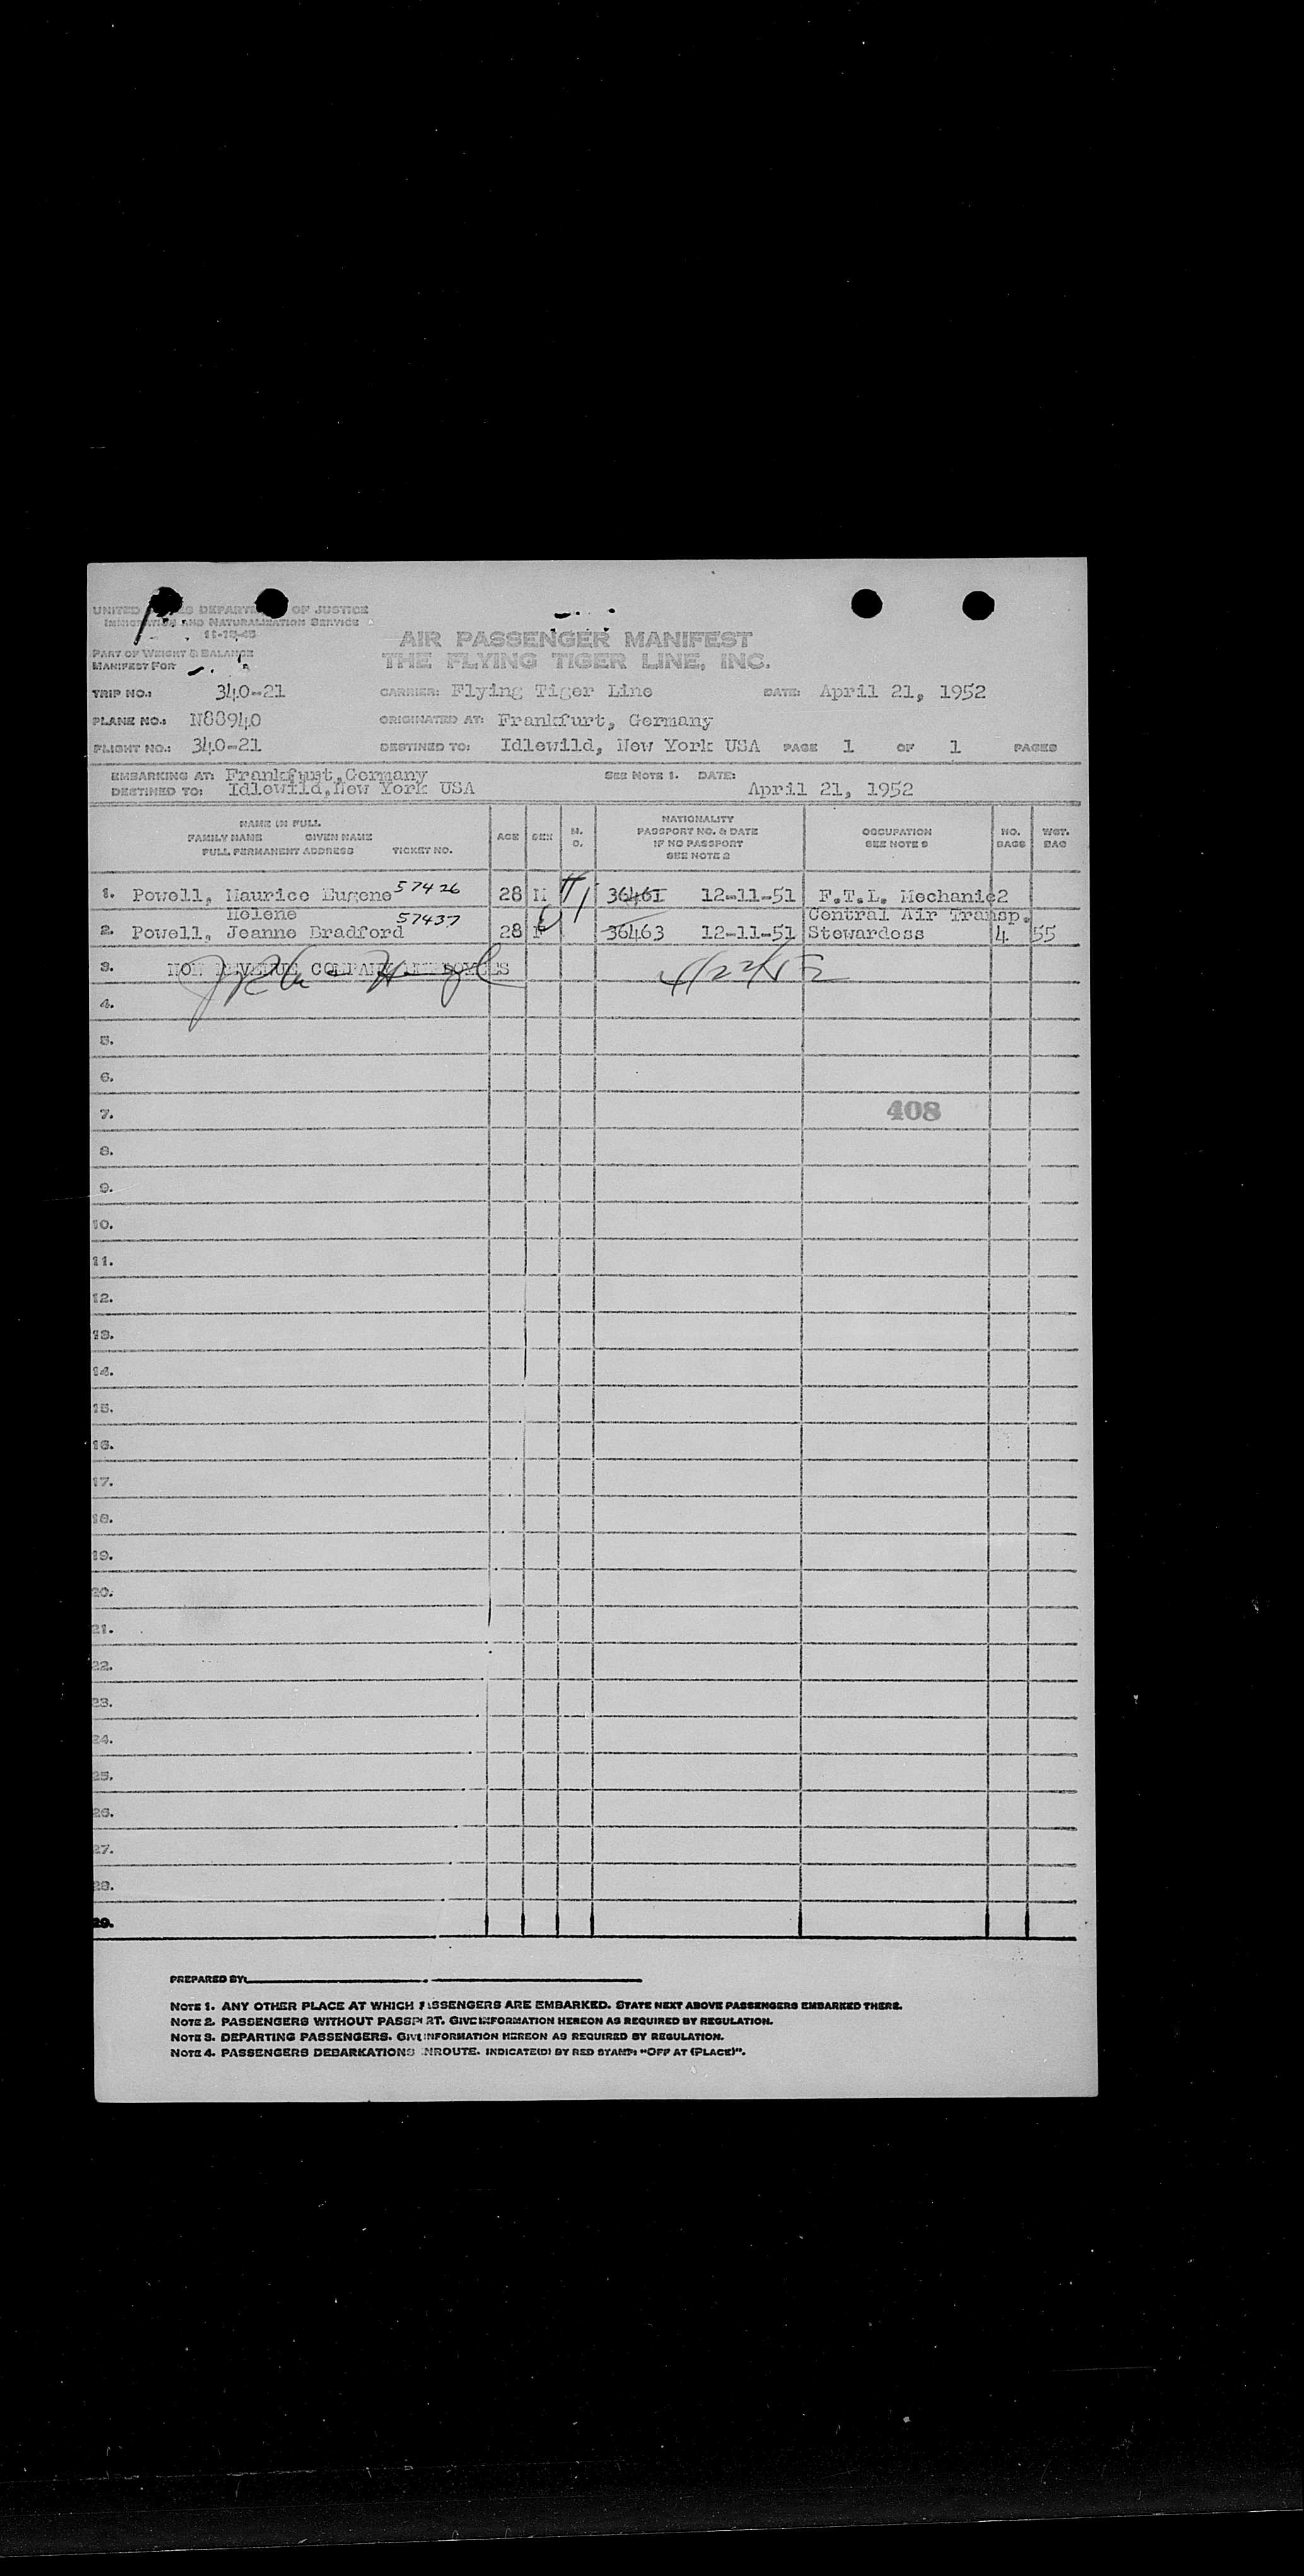 UNITED STATES DEPARTMENT OF JUSTICE
IMMIGRATION AND NATURALIZATION SERVICE
11-15-45
AIR PASSENGER MANIFEST
PART OF WEIGHT & BALANCE
MANIFEST FOR
THE FLYING TIGER LINE, INC.
TRIP NO.: 340-21 CARRIER: Flying Tiger Line DATE: April 21, 1952
PLANE NO.: N88940 ORIGINATED AT: Frankfurt, Germany
FLIGHT NO.: 340-21 DESTINED TO: Idlewild, New York USA PAGE 1 OF 1 PAGES
EMBARKING AT: Frankfurt,Germany SEE NOTE 1. DATE:
DESTINED TO: Idlewild,New York USA April 21, 1952
NAME IN FULL
FAMILY NAME GIVEN NAME
FULL PERMANENT ADDRESS TICKET NO.
AGE SEX
NATIONALITY
PASSPORT NO. & DATE
IF NO PASSPORT
SEE NOTE 2
OCCUPATION
SEE NOTE 3
NO.
BAGS
WGT.
BAG
1. Powell, Maurice Eugene 57426 28 M 36461 12-11-51 F.T.L. Mechanic 2
Helene 57437 Central Air Transp.
2. Powell, Jeanne Bradford 28 F 36463 12-11-51 Stewardess 4 55
3. NON REVENUE COMPANY EMPLOYEES 4/22/52
4.
5.
6.
7. 408
8.
9.
10.
11.
12.
13.
14.
15.
16.
17.
18.
19.
20.
21.
22.
23.
24.
25.
26.
27.
28.
29.
PREPARED BY:
NOTE 1. ANY OTHER PLACE AT WHICH PASSENGERS ARE EMBARKED. STATE NEXT ABOVE PASSENGERS EMBARKED THERE.
NOTE 2. PASSENGERS WITHOUT PASSPORT. GIVE INFORMATION HEREON AS REQUIRED BY REGULATION.
NOTE 3. DEPARTING PASSENGERS. GIVE INFORMATION HEREON AS REQUIRED BY REGULATION.
NOTE 4. PASSENGERS DEBARKATIONS ENROUTE. INDICATE(D) BY RED STAMP: "OFF AT (PLACE)".